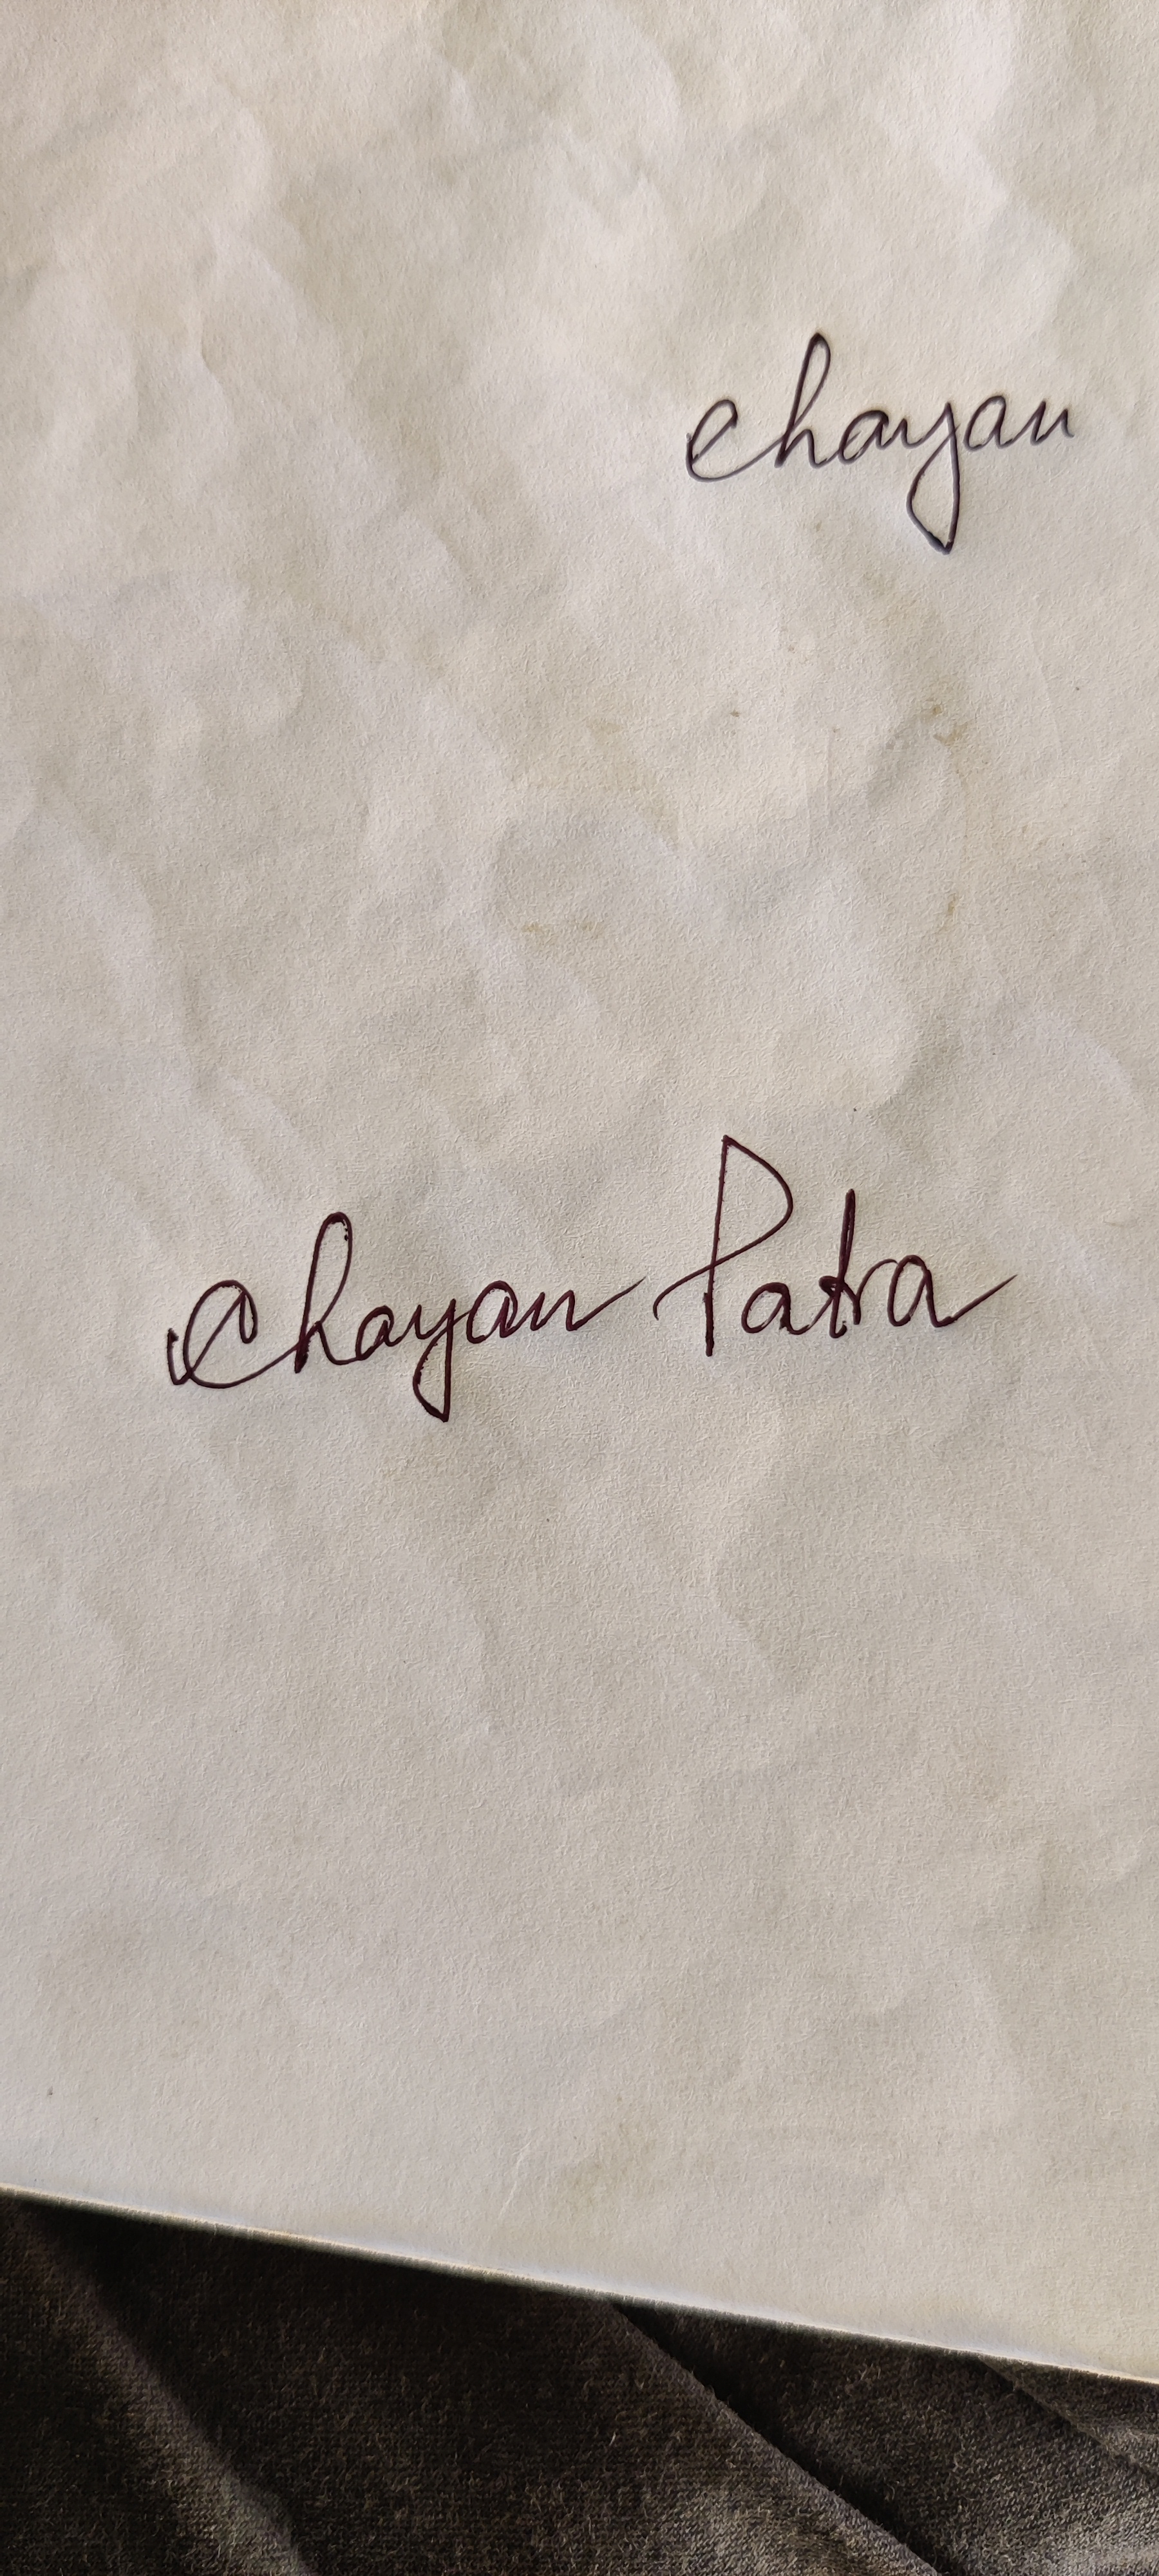 Chayan
Chayan Patra